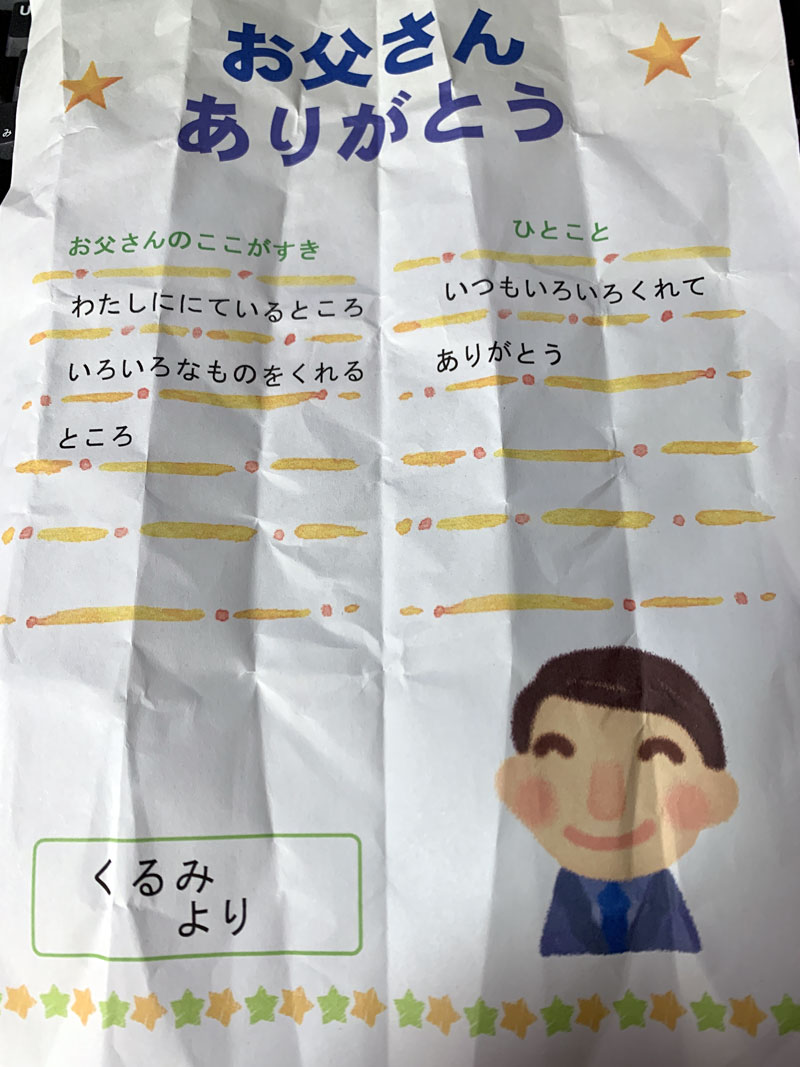 お父さん
ありがとう
お父さんのここがすき
わたしににているところ
いろいろなものをくれる
ところ
ひとこと
いつもいろいろくれて
ありがとう
くるみ
より